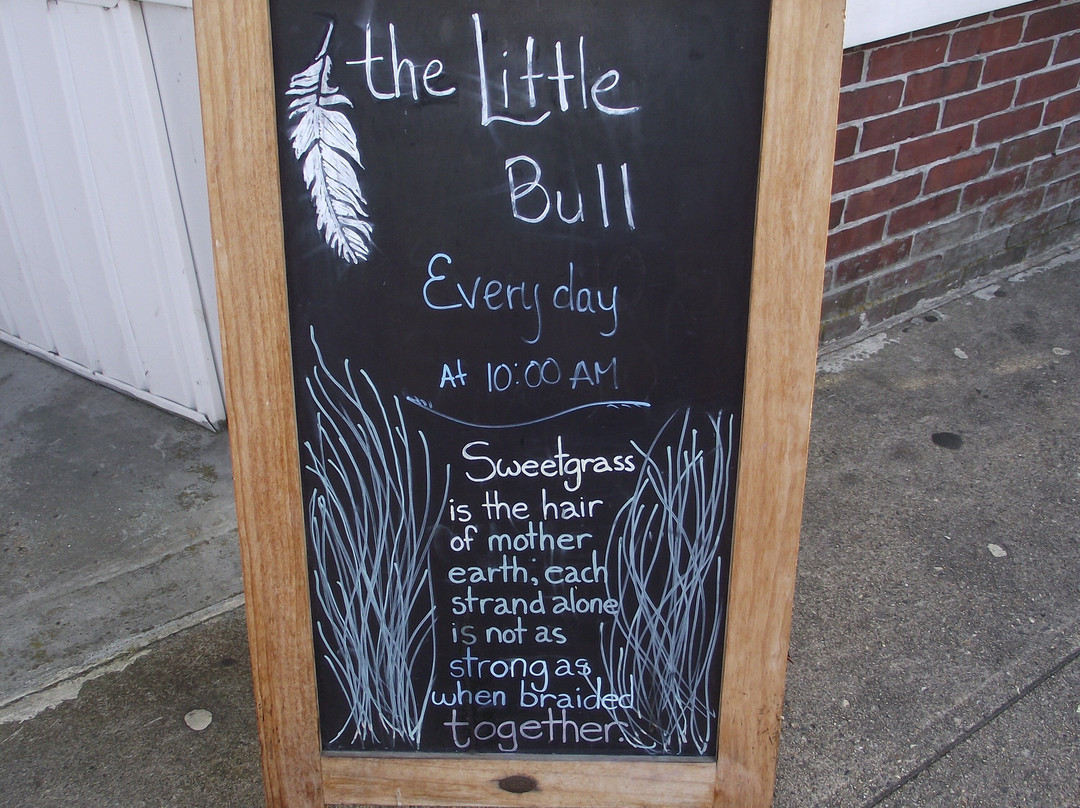 the Little
Bull
Every day
At 10:00 AM
Sweetgrass
is the hair
of mother
earth; each
strand alone
is not as
strong as
when braided
together.